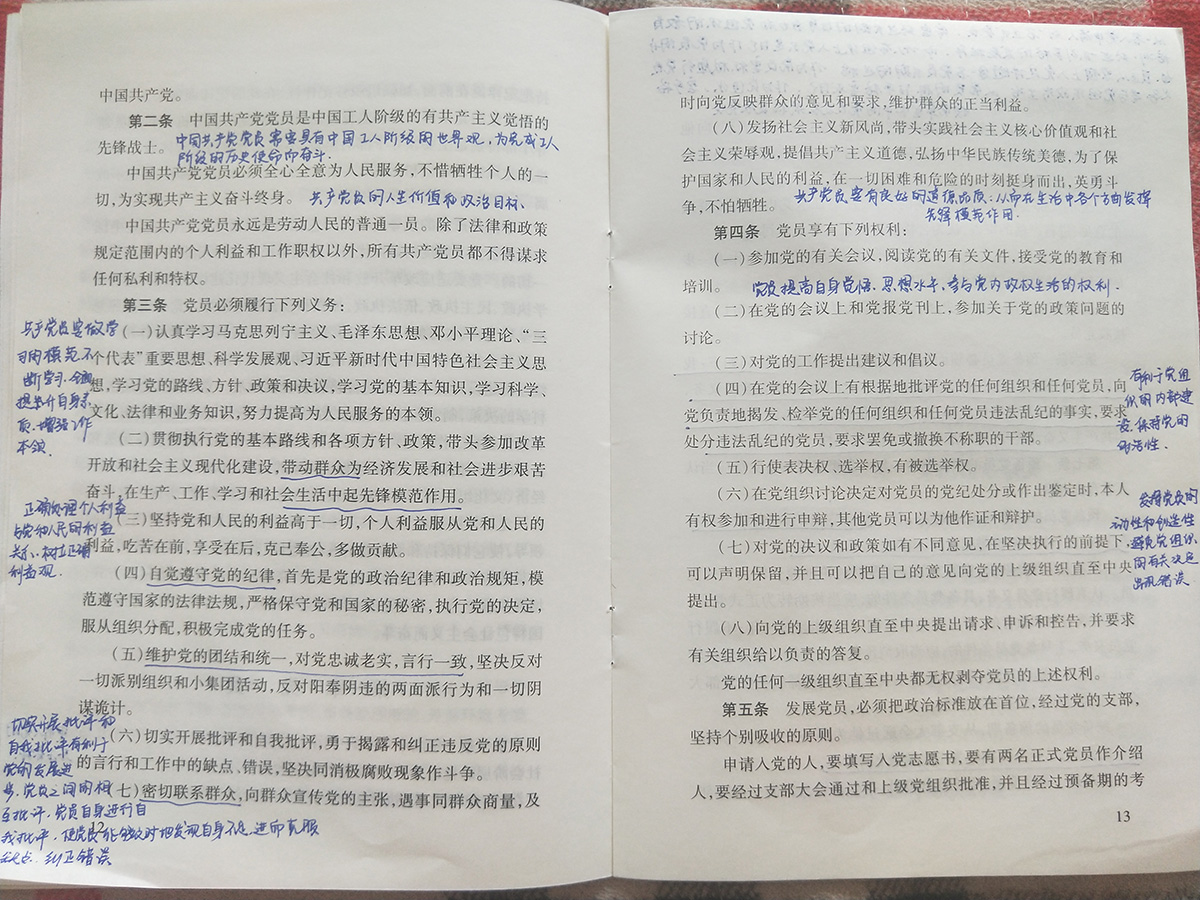 中国共产党。
第二条 中国共产党党员是中国工人阶级的有共产主义觉悟的
先锋战士。
中国共产党党员需要具有中国工人阶级的世界观,为完成工人
阶级的历史使命而奋斗.
中国共产党党员必须全心全意为人民服务,不惜牺牲个人的一
切,为实现共产主义奋斗终身。
共产党员的人生价值和政治目标、
中国共产党党员永远是劳动人民的普通一员。除了法律和政策
规定范围内的个人利益和工作职权以外,所有共产党员都不得谋求
任何私利和特权。
第三条 党员必须履行下列义务:
(一)认真学习马克思列宁主义、毛泽东思想、邓小平理论、“三
个代表”重要思想、科学发展观、习近平新时代中国特色社会主义思
想,学习党的路线、方针、政策和决议,学习党的基本知识,学习科学、
文化、法律和业务知识,努力提高为人民服务的本领。
共产党员要做学
习的模范,不
断学习,全面
提升自身素
质,增强工作
本领
(二)贯彻执行党的基本路线和各项方针、政策,带头参加改革
开放和社会主义现代化建设,带动群众为经济发展和社会进步艰苦
奋斗,在生产、工作、学习和社会生活中起先锋模范作用。
(三)坚持党和人民的利益高于一切,个人利益服从党和人民的
利益,吃苦在前,享受在后,克己奉公,多做贡献。
正确处理个人利益
与党和人民的利益
关系,树立正确
利益观.
(四)自觉遵守党的纪律,首先是党的政治纪律和政治规矩,模
范遵守国家的法律法规,严格保守党和国家的秘密,执行党的决定,
服从组织分配,积极完成党的任务。
(五)维护党的团结和统一,对党忠诚老实,言行一致,坚决反对
一切派别组织和小集团活动,反对阳奉阴违的两面派行为和一切阴
谋诡计。
(六)切实开展批评和自我批评,勇于揭露和纠正违反党的原则
的言行和工作中的缺点、错误,坚决同消极腐败现象作斗争。
七)密切联系群众,向群众宣传党的主张,遇事同群众商量,及
切实开展批评和
自我批评有利于
党的发展进
步,党员之间的相
互批评,党员自身进行自
我批评,使党员能够及时地发现自身不足,进而克服
缺点,纠正错误
12
时向党反映群众的意见和要求,维护群众的正当利益。
(八)发扬社会主义新风尚,带头实践社会主义核心价值观和社
会主义荣辱观,提倡共产主义道德,弘扬中华民族传统美德,为了保
护国家和人民的利益,在一切困难和危险的时刻挺身而出,英勇斗
争,不怕牺牲。
共产党员要有良好的道德品质,从而在生活中各个方面发挥
先锋模范作用.
第四条 党员享有下列权利:
(一)参加党的有关会议,阅读党的有关文件,接受党的教育和
培训。
党员提高自身觉悟、思想水平,参与党内政权生活的权利.
(二)在党的会议上和党报党刊上,参加关于党的政策问题的
讨论。
(三)对党的工作提出建议和倡议。
(四)在党的会议上有根据地批评党的任何组织和任何党员,向
党负责地揭发、检举党的任何组织和任何党员违法乱纪的事实,要求
处分违法乱纪的党员,要求罢免或撤换不称职的干部。
有利于党组
织的内部建
设,保持党的
纯洁性.
(五)行使表决权、选举权,有被选举权。
(六)在党组织讨论决定对党员的党纪处分或作出鉴定时,本人
有权参加和进行申辩,其他党员可以为他作证和辩护。
(七)对党的决议和政策如有不同意见,在坚决执行的前提下,
可以声明保留,并且可以把自己的意见向党的上级组织直至中央
提出。
发挥党员的
动性和创造性
避免党组织
的有关决定
出现错误
(八)向党的上级组织直至中央提出请求、申诉和控告,并要求
有关组织给以负责的答复。
党的任何一级组织直至中央都无权剥夺党员的上述权利。
第五条 发展党员,必须把政治标准放在首位,经过党的支部,
坚持个别吸收的原则。
申请入党的人,要填写入党志愿书,要有两名正式党员作介绍
人,要经过支部大会通过和上级党组织批准,并且经过预备期的考
13